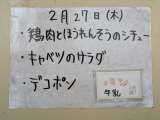 2月27日(木)
・鶏肉とほうれんそうのシチュー
・キャベツのサラダ
・デコポン
牛乳